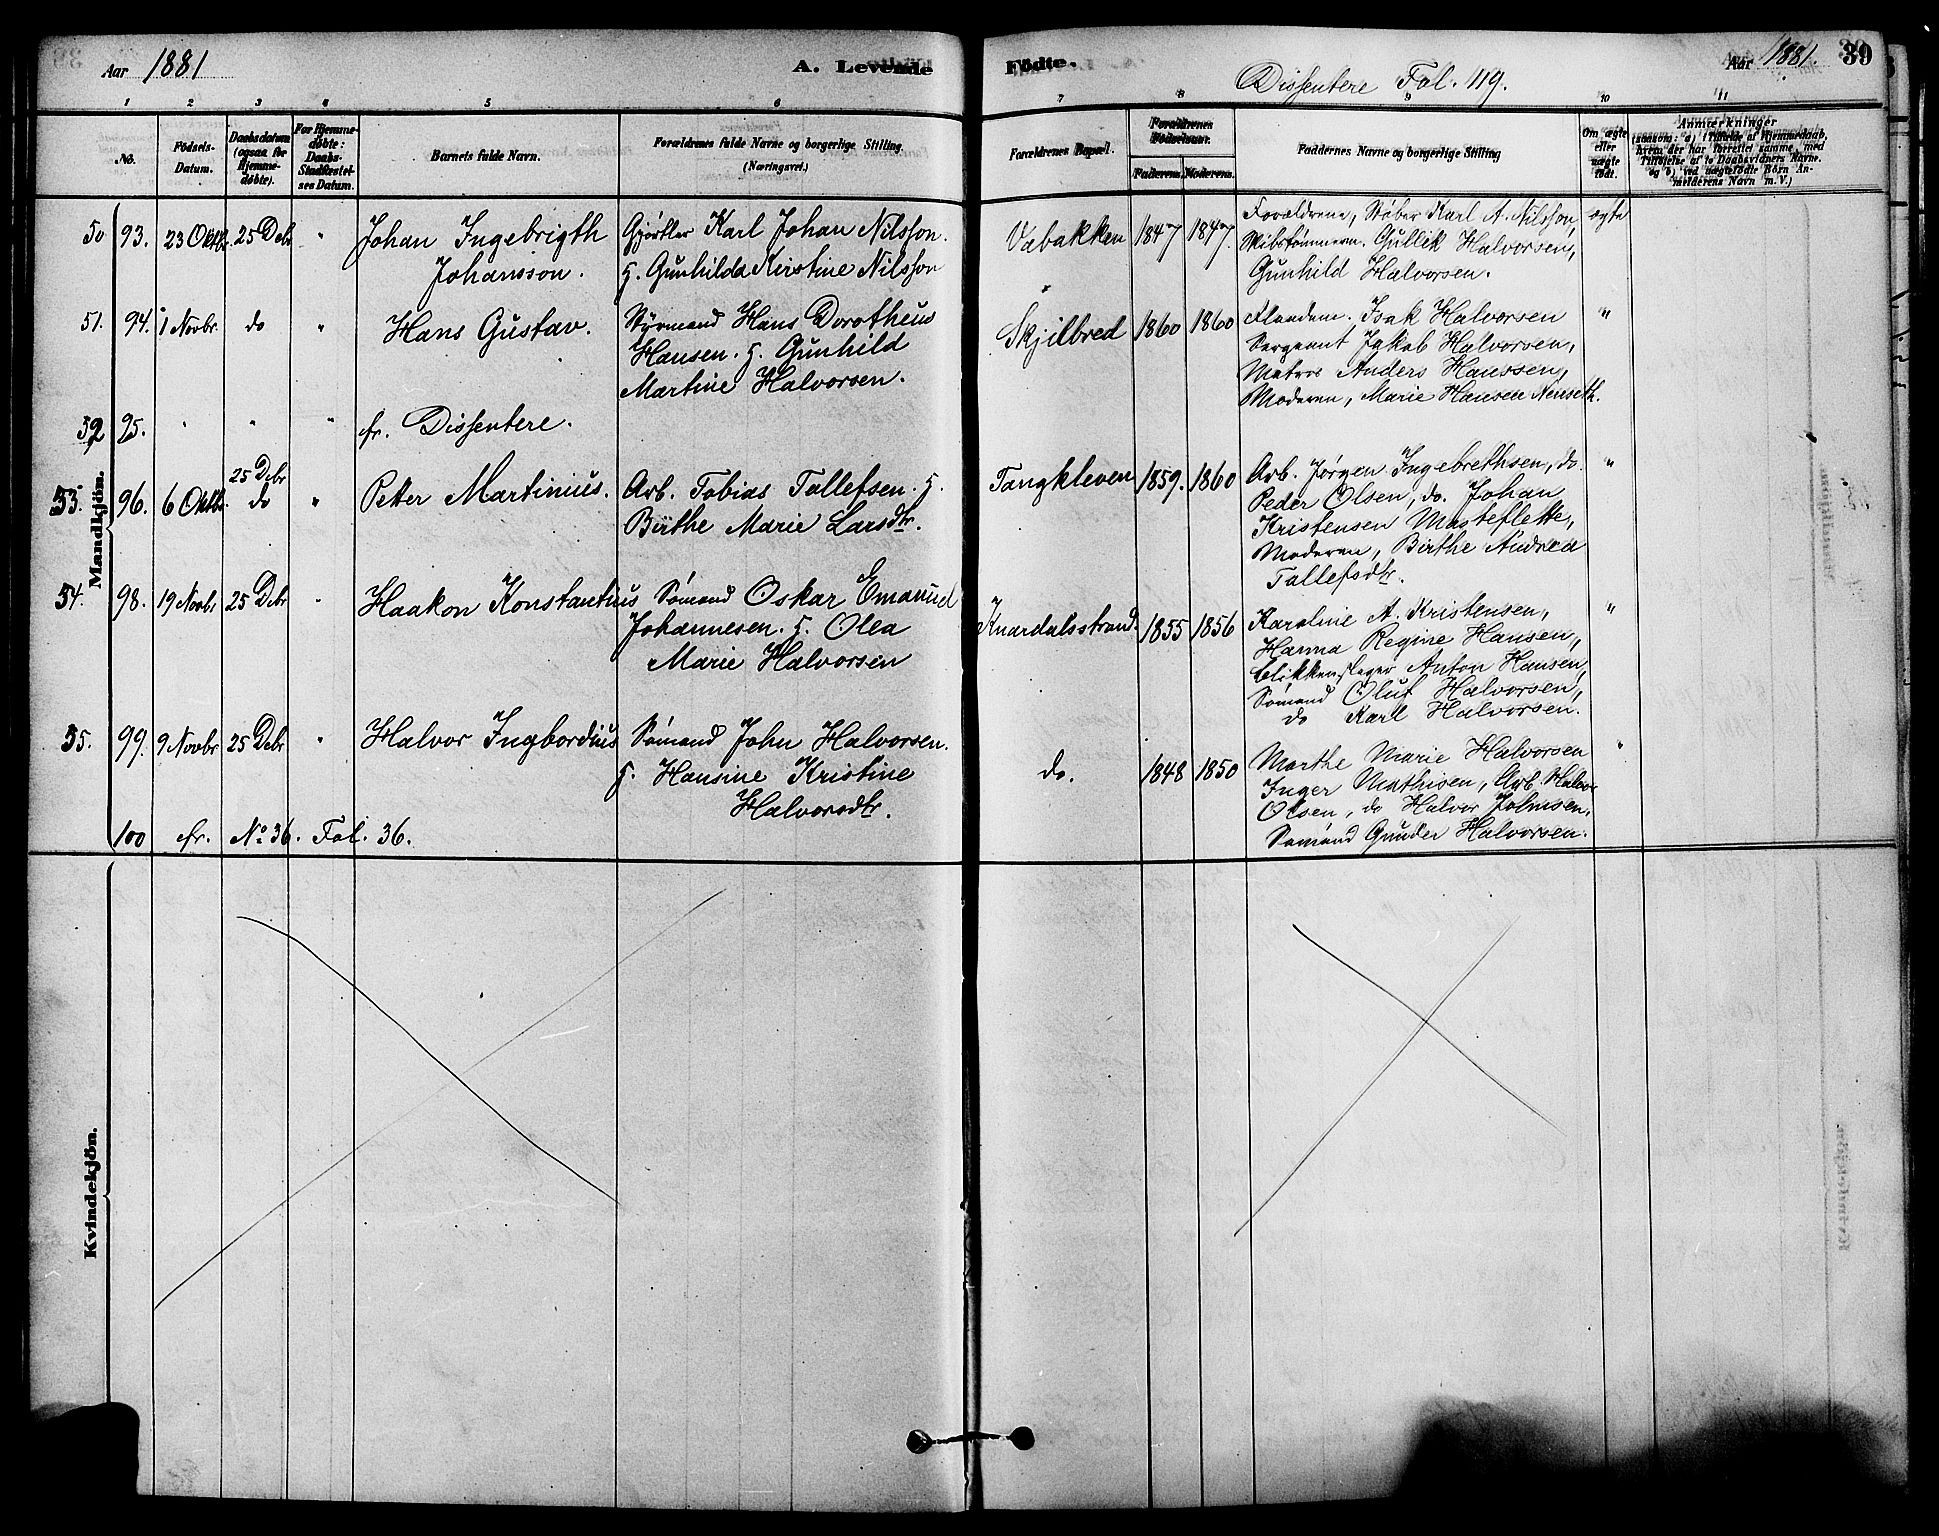 Aar 1881
A. Levende Födte.
Dissentere Fol. 119.
Aar 1881.
39
1 2 3 4 5 6 7 8 9 10 11
No.
Födsels-
Datum.
Daabsdatum
(ogsaa for
Hjemme-
døbte).
For Hjemme-
døbte:
Daabs-
Stadfæstel-
ses Datum.
Barnets fulde Navn.
Forældrenes fulde Navne og borgerlige Stilling
(Næringsvei.)
Forældrenes Bopæl.
Forældrenes
Födselsaar.
Faderens. Moderens.
Faddernes Navne og borgerlige Stilling
Om ægte
eller
uægte
født.
Anmærkninger
(saasom: a) Tilfælde af Hjemmedaab,
hvem der har forrettet samme, med
Tilføielse af to Daabsvidners Navne.
og b) ved uægtefødte Börn An-
melderens Navn m. V.)
Mandkjön.
50 93. 23 Oktbr. 25 Debr "
Johan Ingebrigth
Johansson.
Gjørtler Karl Johan Nilsson.
h. Gunhilda Kirstine Nilsson
Vabakken 1847 1847.
Forældrene, Støber Karl A. Nilsson,
Skibstømmerm. Gullik Halvorsen,
Gunhild Halvorsen.
ægte
51. 94. 1 Novbr. do "
Hans Gustav.
Styrmand Hans Dorotheus
Hansen. h. Gunhild
Martine Halvorsen.
Skjilbred 1860 1860
Isak Halvorsen
Sergeant Jakob Halvorsen,
Matros Anders Hanssen,
Moderen, Marie Hansen Nenseth.
"
52 95. " " "
fr. Dissentere.
53. 96. 6 Oktb. 25 Debr
do "
Peter Martinius.
Arb. Tobias Tollefsen. h.
Birthe Marie Larsdtr.
Tangkleven 1859. 1860
Arb. Jørgen Ingebrethsen, do.
Peder Olsen, do. Johan
Kristensen Masteflette,
Moderen, Birthe Andrea
Tallefsdtr.
"
54. 98. 19 Novbr 25 Debr "
Haakon Konstantius
Sømand Oskar Emanuel
Johannesen. h. Olea
Marie Halvorsen
Knardalsstrand. 1855 1856
Karoline A. Kristensen,
Hanna Regine Hansen,
Blikkenslager Anton Hansen,
Sømand Oluf Halvorsen,
do Karl Halvorsen.
"
55. 99. 9 Novbr 25 Debr "
Halvor Ingbordius
Sømand John Halvorsen.
h. Hansine Kristine
Halvorsdtr.
do. 1848 1850
Marthe Marie Halvorsen
Inger Mathisen, Arb. Halvor
Olsen, do Halvor Johnsen.
Sømand Gunder Halvorsen.
"
100 fr. No 36. Fol. 36.
Kvindekjön.